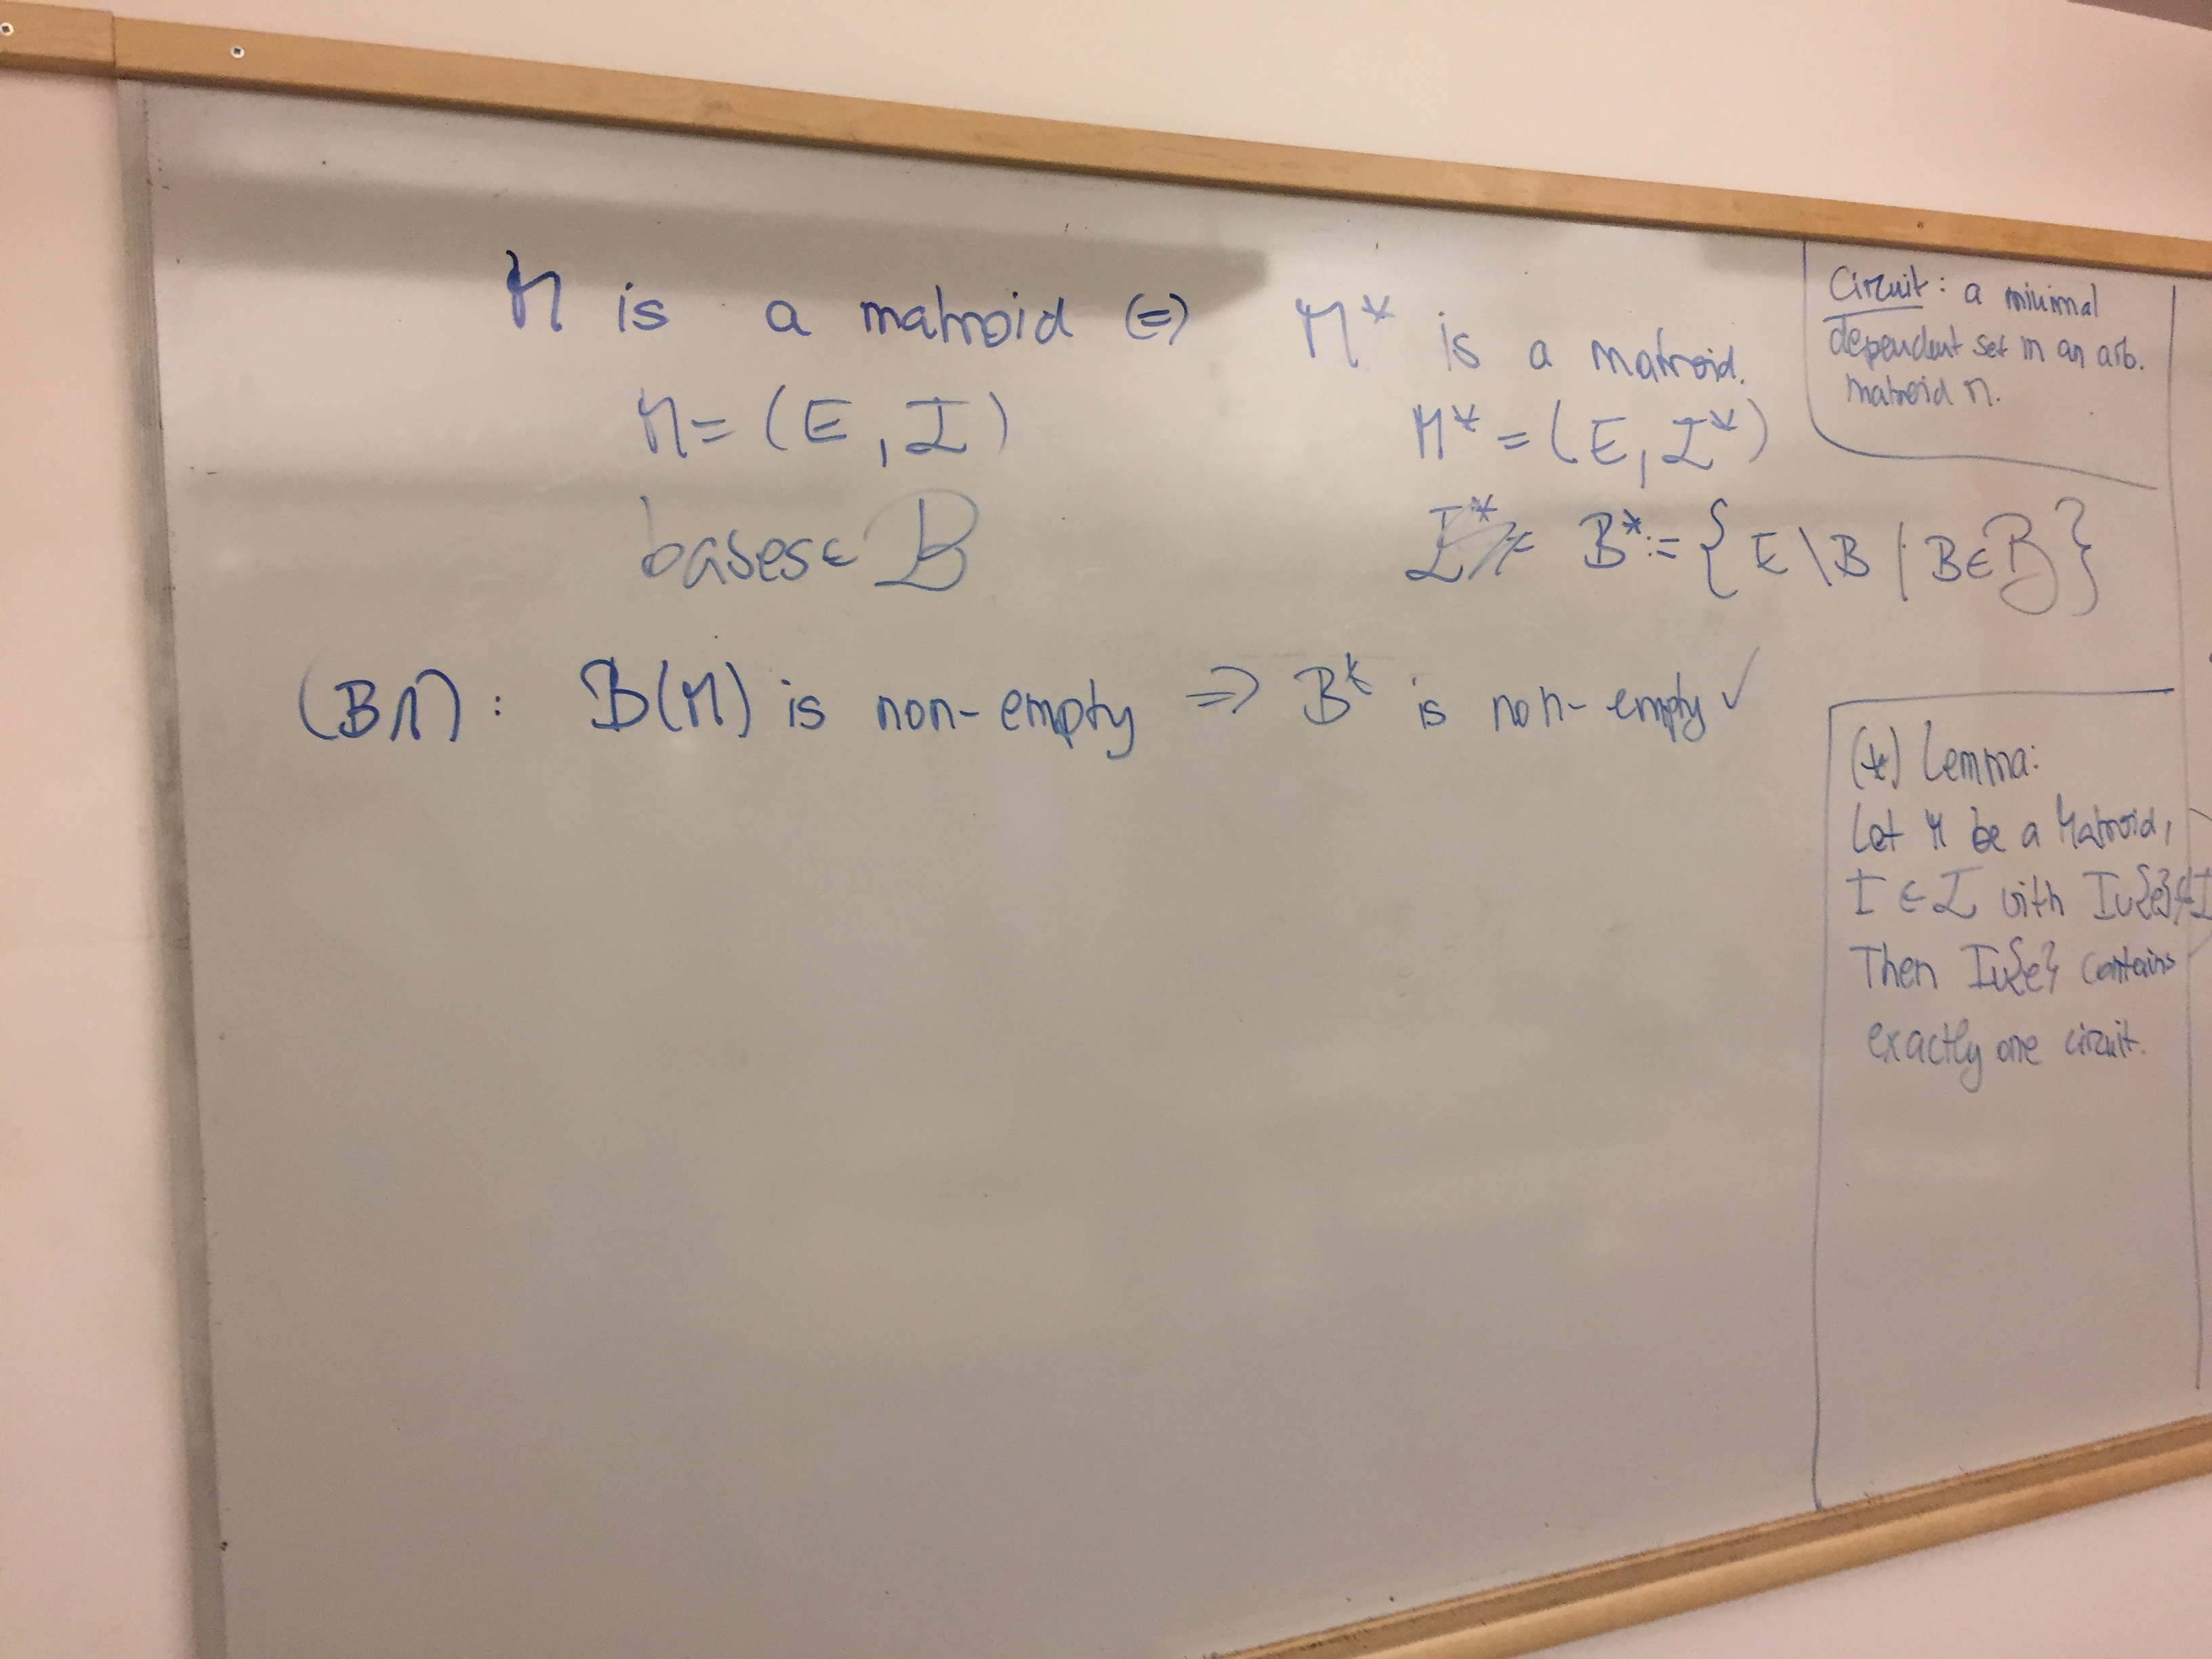 M is a matroid (=) M* is a matroid.
M = (E, I) M* = (E, I*)
bases ∈ B B* := {E \ B | B ∈ B}
(B1): B(M) is non-empty => B* is non-empty ✓
Circuit: a minimal
dependent set in an arb.
matroid M.
(*) Lemma:
Let M be a Matroid,
I ∈ I with I∪{e} ∉ I
Then I∪{e} contains
exactly one circuit.